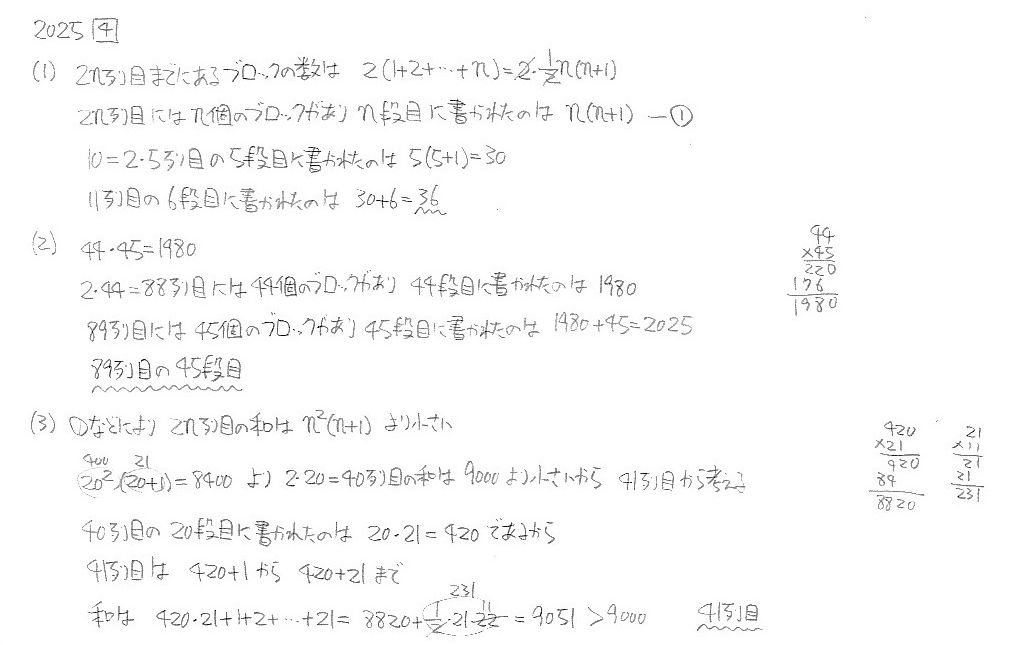 2025 4
(1) 2n列目までにあるブロックの数は 2(1+2+…+n)=2・1/2n(n+1)
2n列目にはn個のブロックがあり n段目に書かれたのは n(n+1) ―①
10=2・5列目の5段目に書かれたのは 5(5+1)=30
11列目の6段目に書かれたのは 30+6=36
(2) 44・45=1980
2・44=88列目には44個のブロックがあり 44段目に書かれたのは 1980
89列目には45個のブロックがあり45段目に書かれたのは 1980+45=2025
89列目の45段目
44
×45
220
176
1980
(3) ①などにより 2n列目の和は n²(n+1) より小さい
400 21
20²(20+1)=8400 より 2・20=40列目の和は 9000より小さいから 41列目から考える
40列目の20段目に書かれたのは 20・21=420 であるから
41列目は 420+1から 420+21まで
231
11
和は 420・21+1+2+…+21= 8820+1/2・21・22 = 9051 >9000 41列目
420
×21
420
84
8820
21
×11
21
21
231